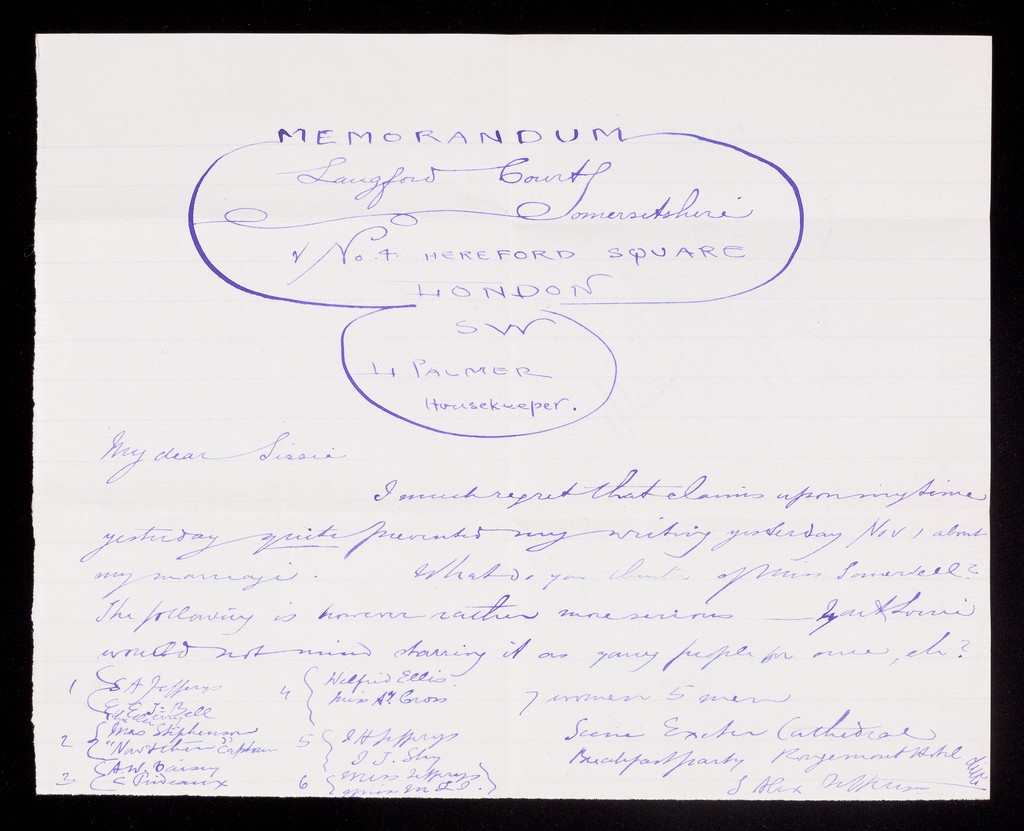 MEMORANDUM
Langford Court
Somersetshire
& No. 4 HEREFORD SQUARE
LONDON
SW
H PALMER
Housekeeper.
My dear Sissie
I much regret that claims upon my time
yesterday quite prevented my writing yesterday Nov 1 about
my marriage. What do you think of Miss Somervell?
The following is however rather more serious — You & Louie
would not mind starring it as young people for once, eh?
1 { S A Jefferys
E J. Bell
2 { Mrs Stephenson
"Northern"
3 { A.W. Daisy
C Prideaux
4 { Wilfrid Ellis
Miss Ay Cross
5 { J H Jefferys
J J. Sly
6 { Miss Jefferys
Miss M
7 women 5 men
Scene Exeter Cathedral
Breakfast party Rougemont Hotel
S Alex